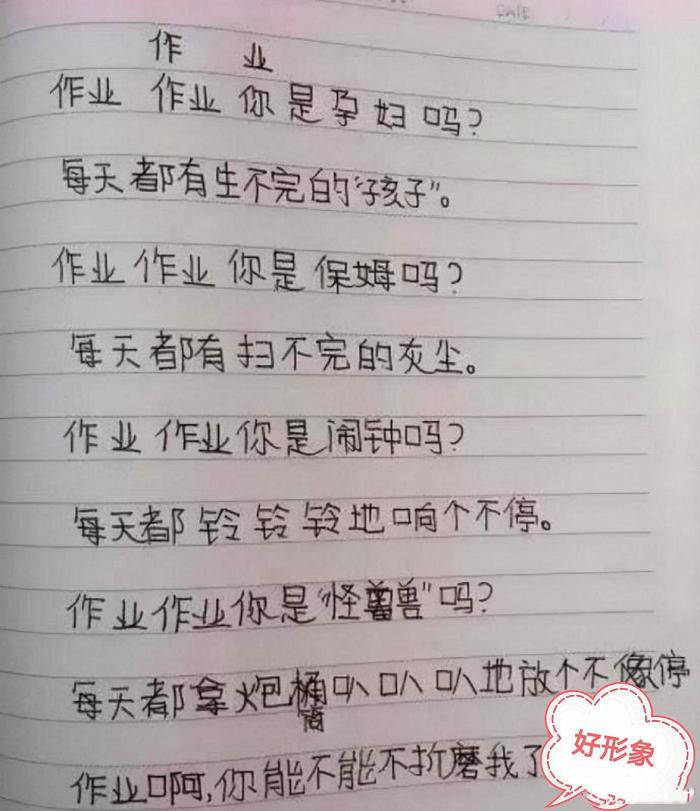 作 业
作业 作业 你是孕妇吗?
每天都有生不完的“孩子”。
作业 作业 你是保姆吗?
每天都有扫不完的灰尘。
作业 作业你是闹钟吗?
每天都铃铃铃地响个不停。
作业作业你是“怪兽”吗?
每天都拿炮桶叭叭叭地放个不停
作业啊,你能不能不折磨我了
好形象